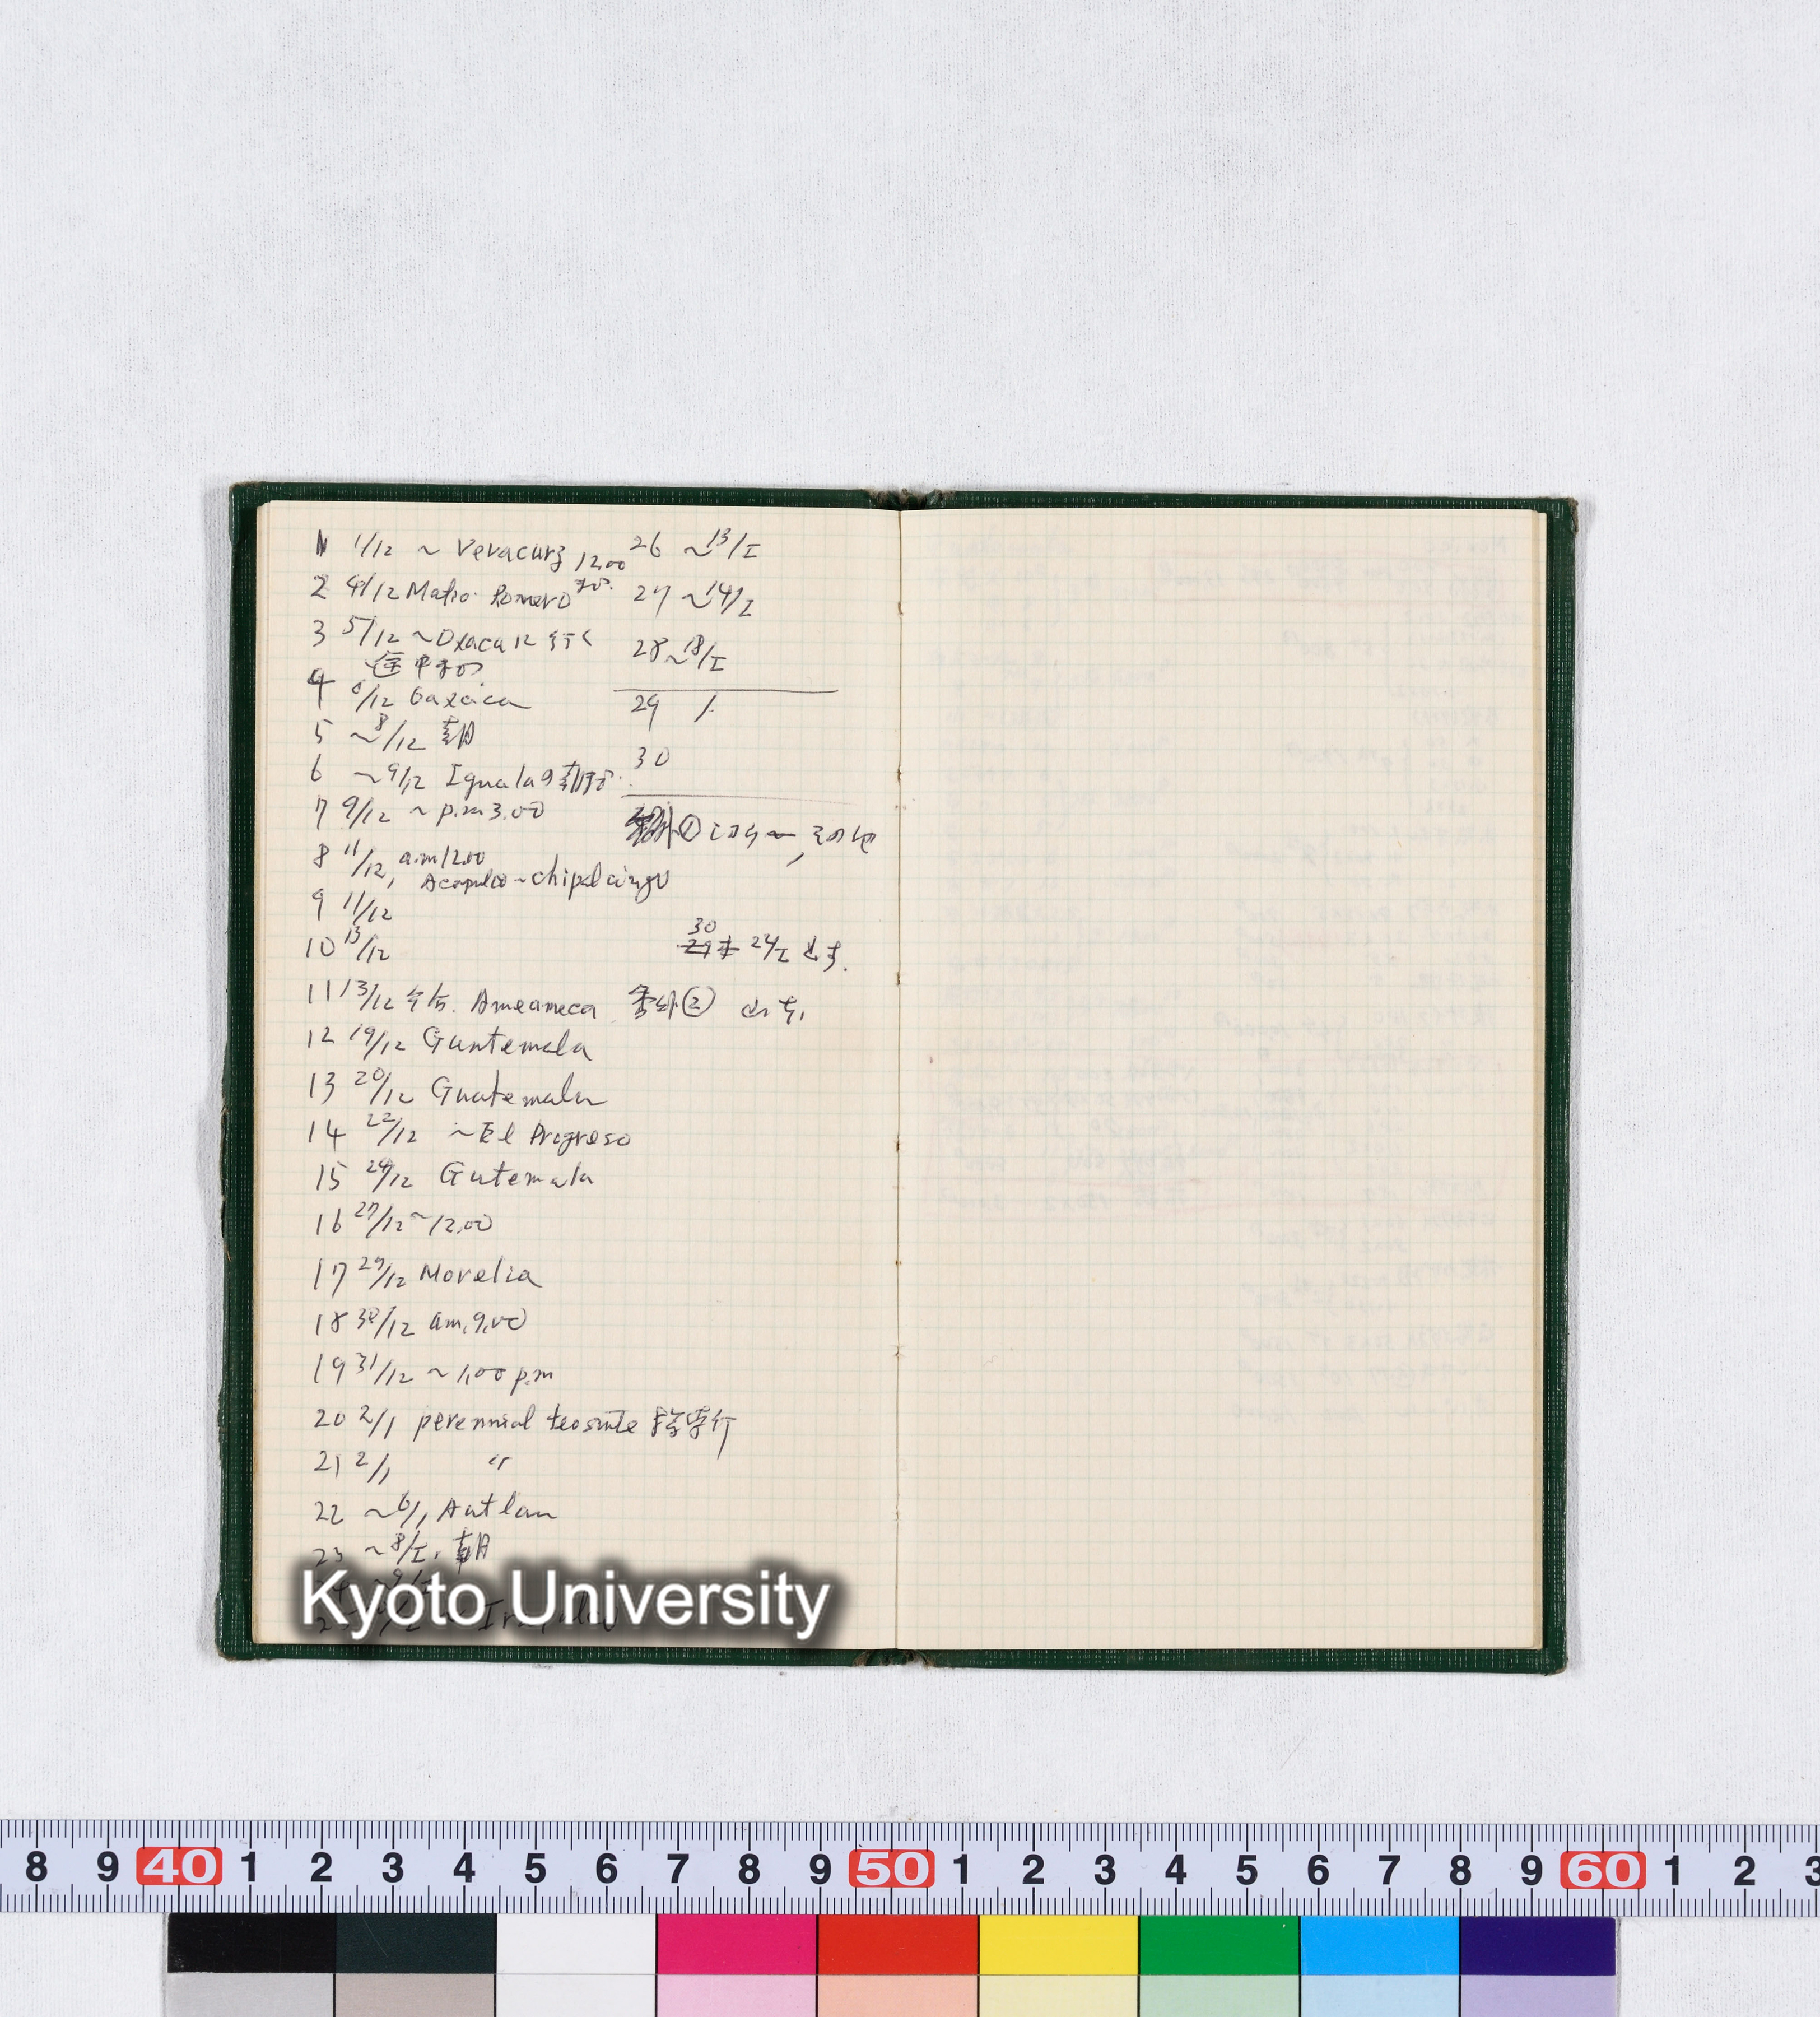 1 1/12 ~ Veracurz 12.00
2 4/12 Matio Romero
3 5/12 ~ Oxacaに行く
途中
4 6/12 Oaxaca
5 ~8/12 朝
6 ~9/12 Igualaの朝
7 9/12 ~ p.m 3.00
8 11/12, a.m 12.00
Acapulco ~ chipalcingo
9 11/12
10 13/12
11 13/12 午后. Ameameca
12 19/12 Guntemala
13 20/12 Guatemala
14 22/12 ~ El Progreso
15 24/12 Gutemala
16 27/12 ~ 12.00
17 29/12 Morelia
18 30/12 am. 9.00
19 31/12 ~ 1.00 p.m
20 2/1 perennial teosinte
21 2/1 〃
22 ~6/1 Autlan
23 ~8/I. 朝
26 ~13/I
27 ~14/I
28 ~18/I
29
30
番外① その他
30
24/I
番外②
Kyoto University
8 9 40 1 2 3 4 5 6 7 8 9 50 1 2 3 4 5 6 7 8 9 60 1 2 3